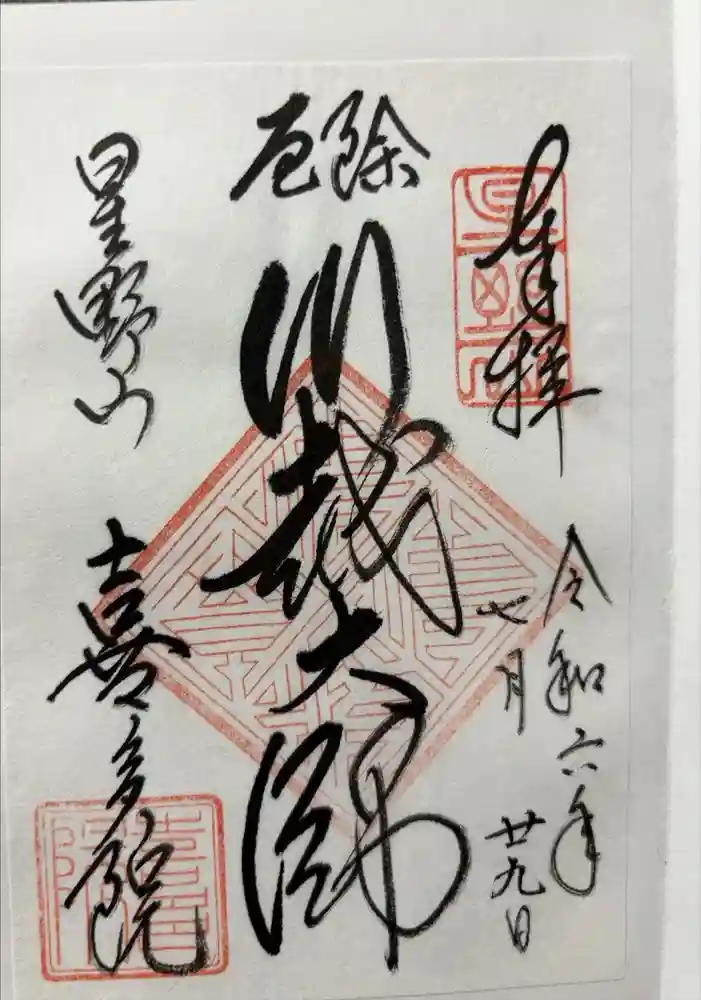 奉拝
令和六年
七月
廿九日
厄除
川越大師
星野山
喜多院